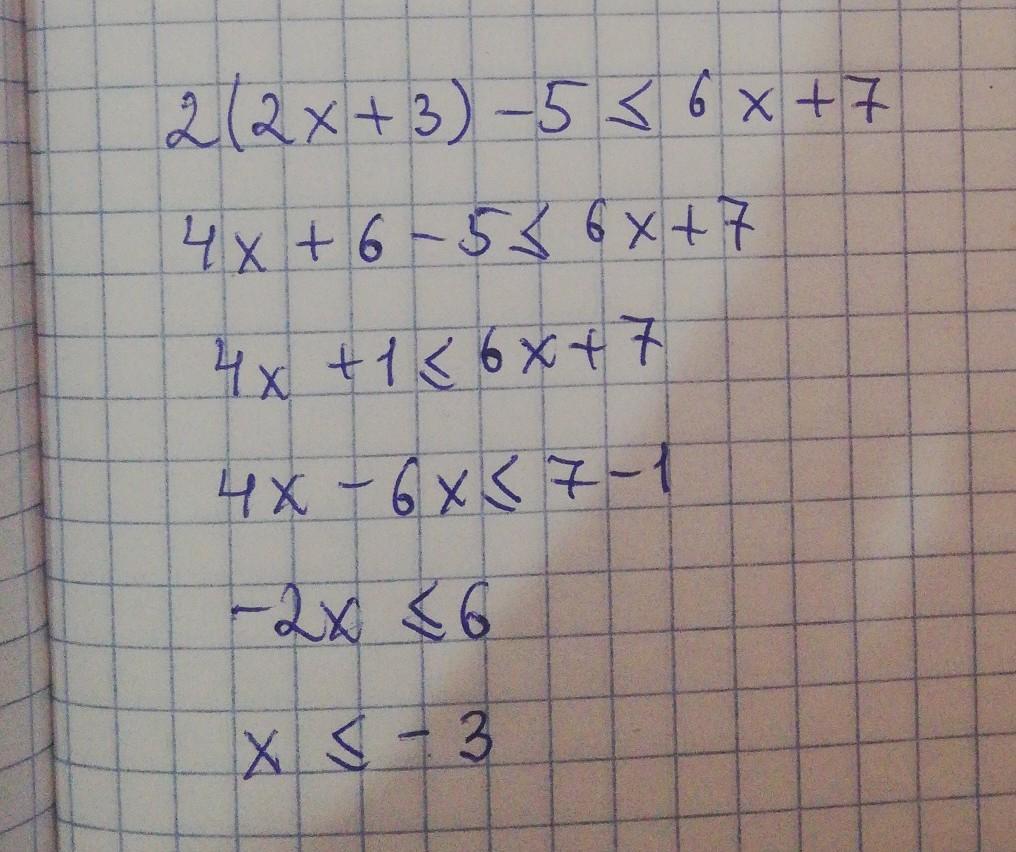 2(2x+3)-5≤6x+7
4x+6-5≤6x+7
4x+1≤6x+7
4x-6x≤7-1
-2x≤6
x≤-3